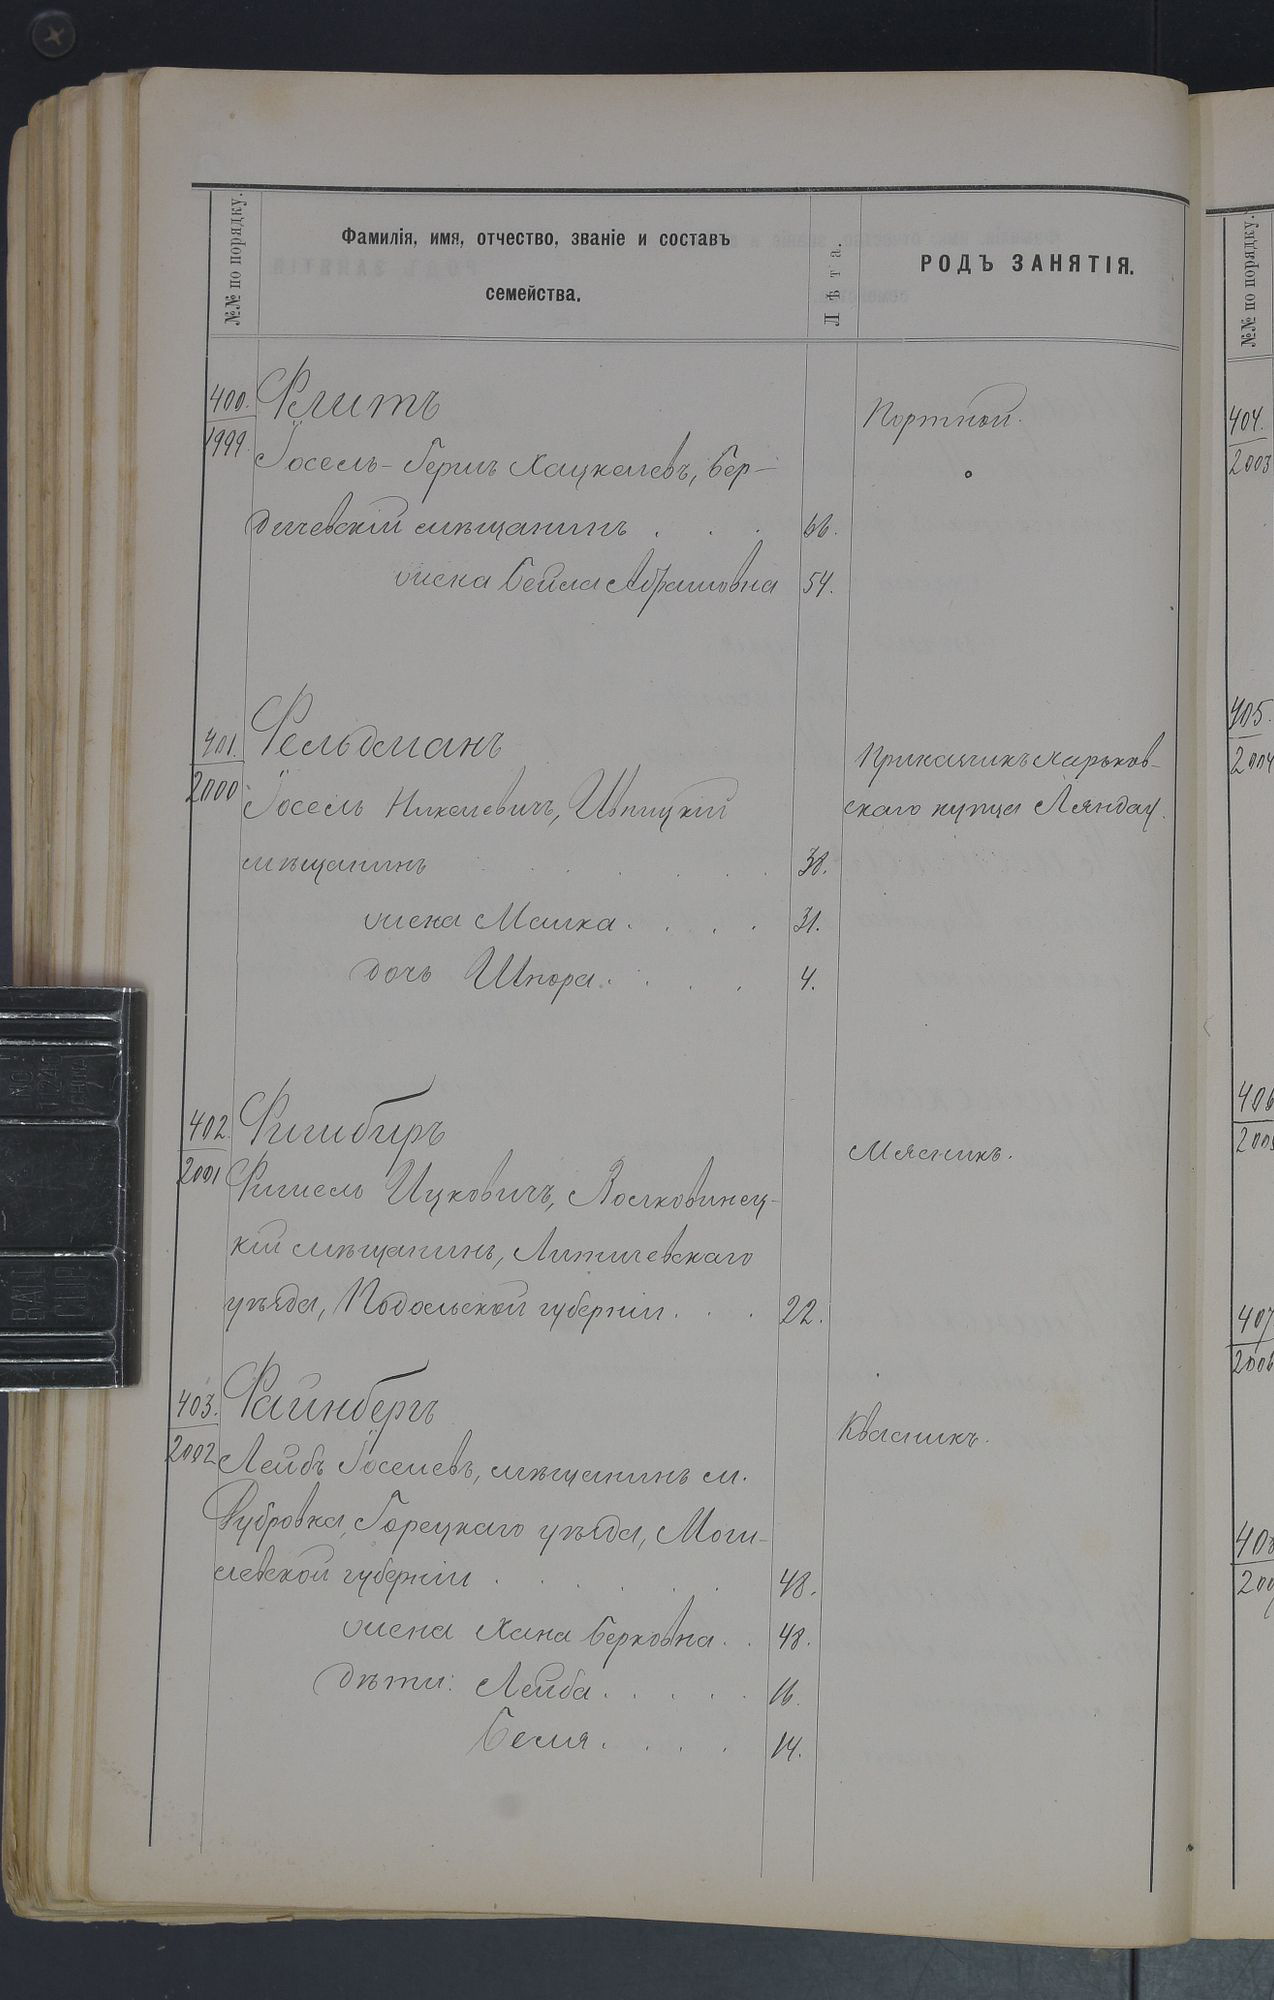 №№ по порядку.
Фамилія, имя, отчество, званіе и составъ
семейства.
Лѣта.
РОДЪ ЗАНЯТІЯ.
400.
1999.
Флитъ
Портной.
Іосель-Гершъ Хацкелевъ, Бер-
дичевскій мѣщанинъ . . . 66.
жена Бейла Абрамовна 54.
401.
2000
Фельдманъ
Прикащикъ харьков-
скаго купца Ляндау.
Іосель
мѣщанинъ . . . . . . 38.
жена Малка . . . . 31.
дочь Шпора . . . . 4.
402.
2001
Фишбиръ
Мясникъ.
Фишель Ицковичъ, Волковинец-
кій мѣщанинъ, Литичевскаго
уѣзда, Подольской губерніи . . . 22.
403.
2002
Файнбергъ
Квасникъ.
Лейбъ Іоселевъ, мѣщанинъ м.
Дубровка, Горецкаго уѣзда, Моги-
левской губерніи . . . . . . 48.
жена Хана Берковна . . 48.
дѣти: Лейба . . . . . 16.
Беля . . . . 14.
№№ по порядку.
404.
2003
405.
2004
406
2005
407
2006
408
NO
1124
CHINA
BALL
CLIP